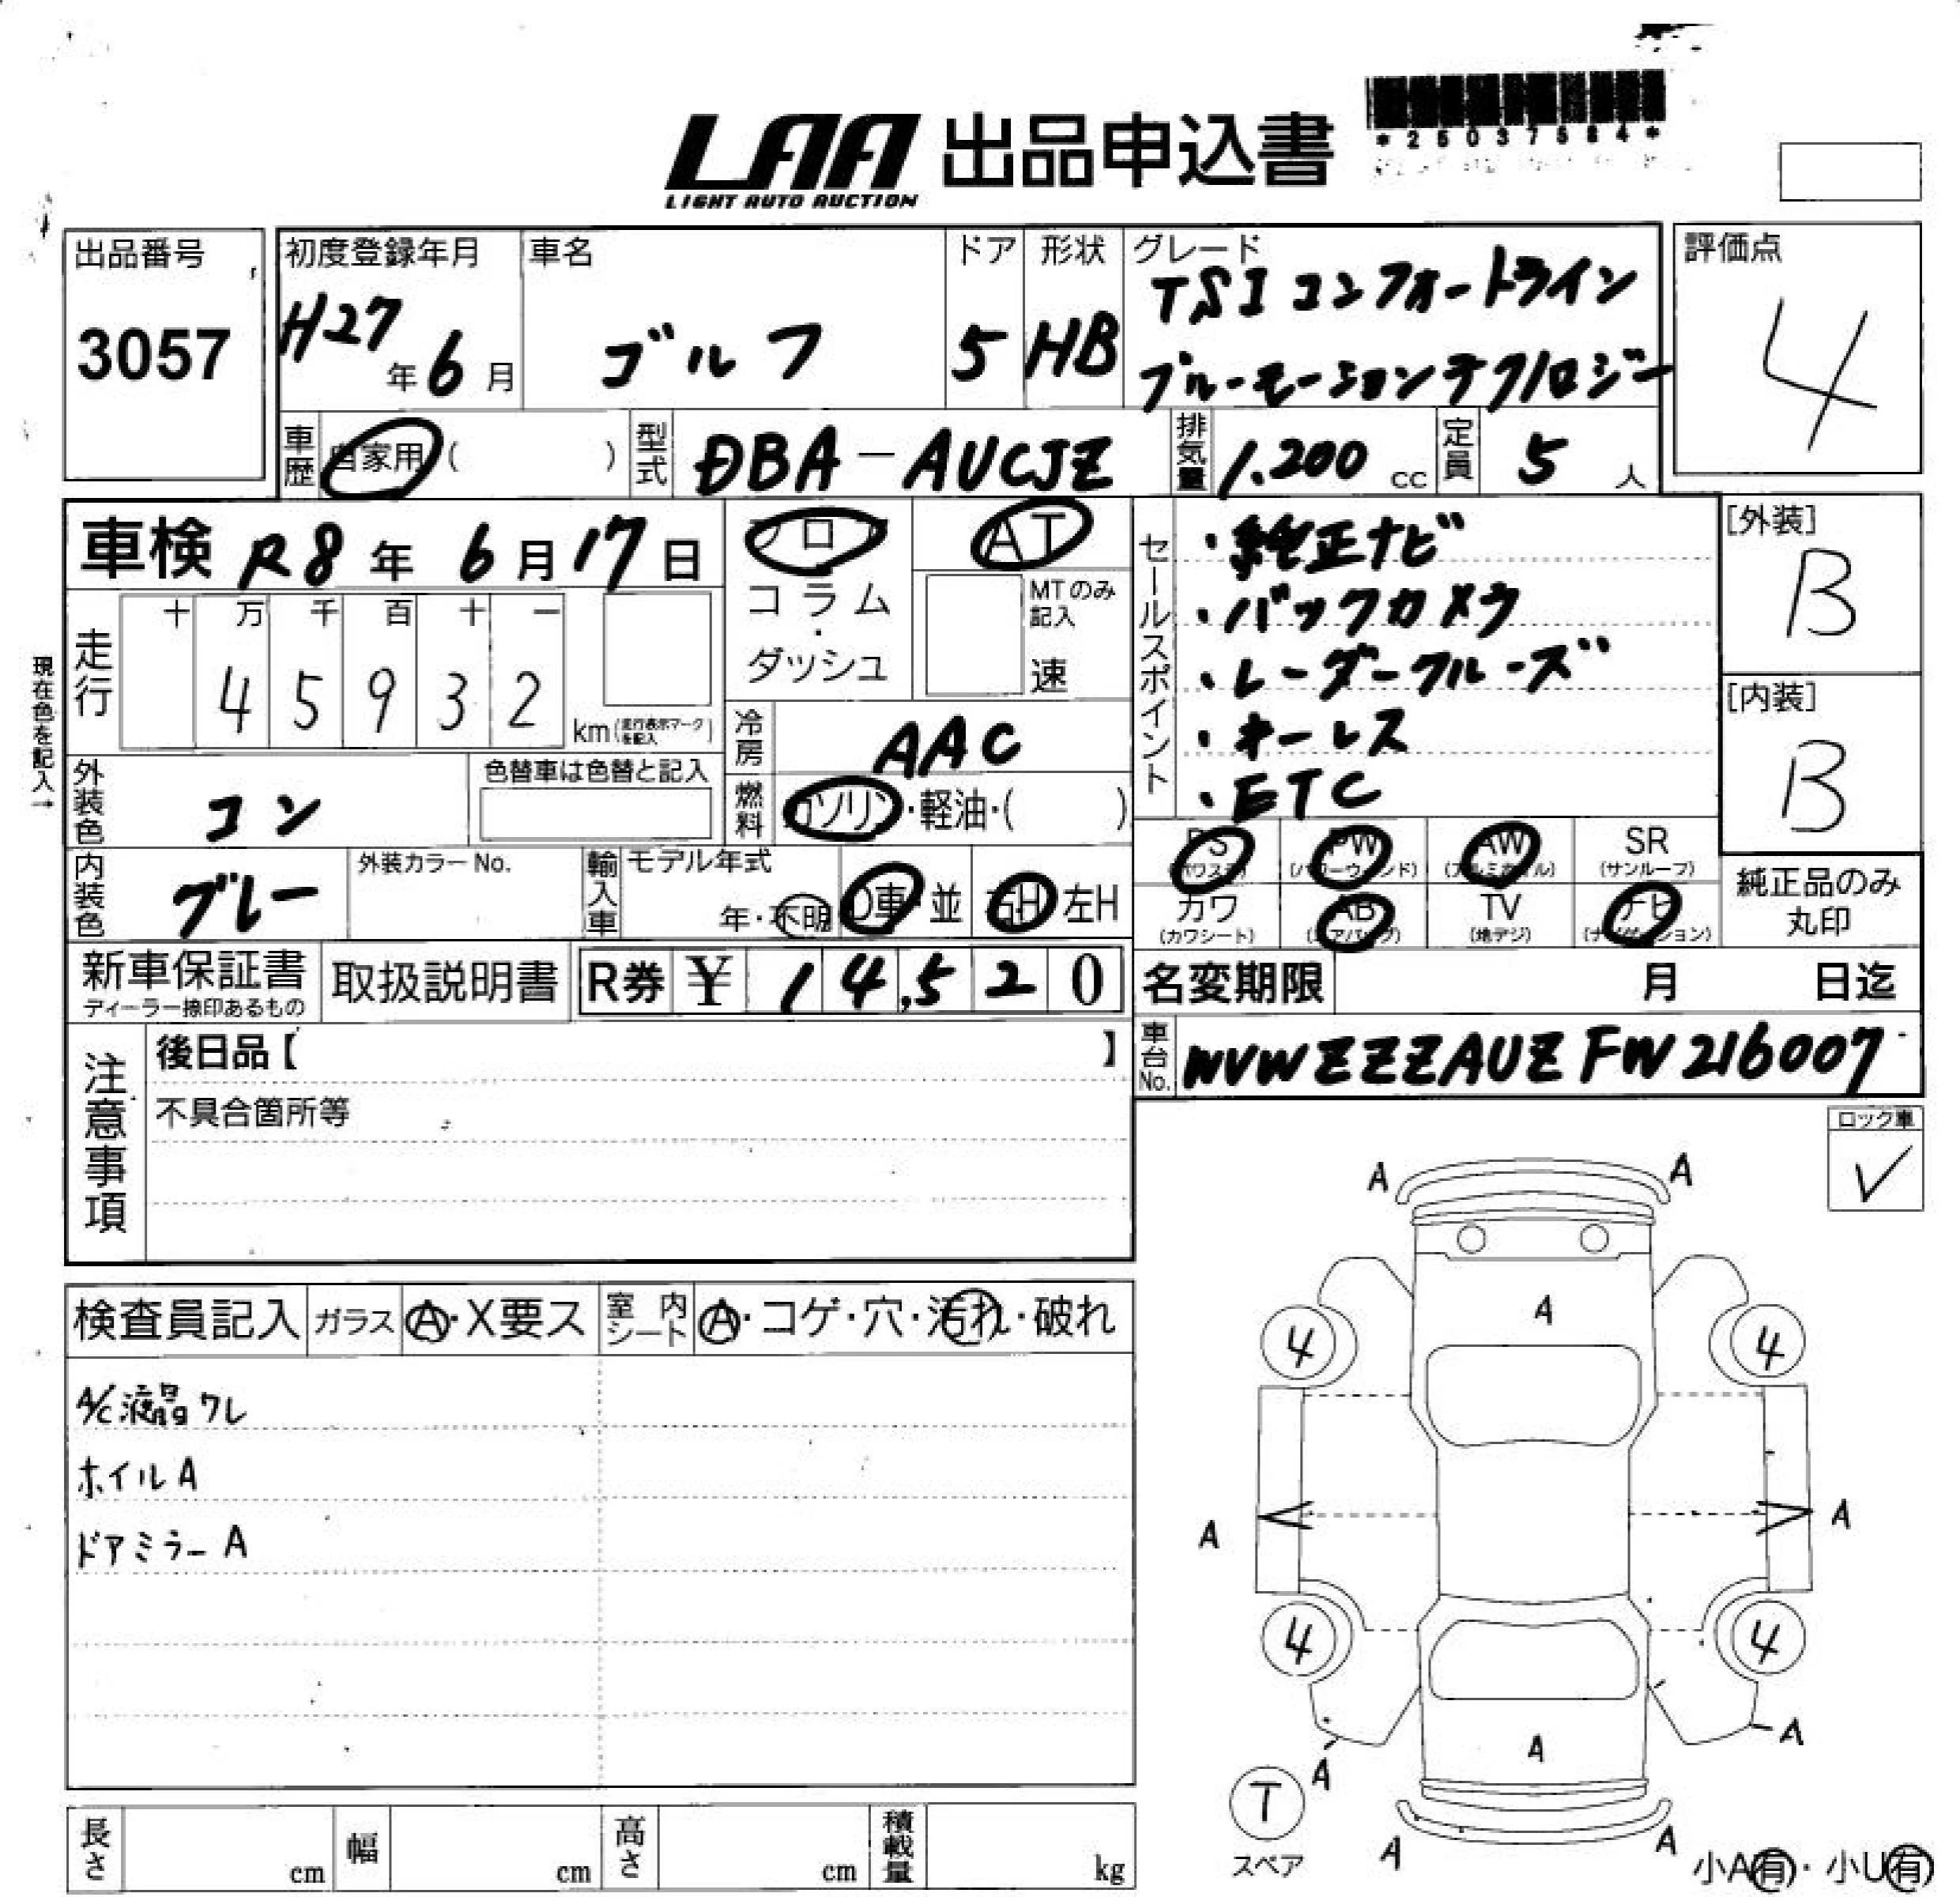 LAA 出品申込書
LIGHT AUTO AUCTION
出品番号
3057
初度登録年月
H27年6月
車名
ゴルフ
ドア
5
形状
HB
グレード
TSI コンフォートライン
ブルーモーションテクノロジー
評価点
4
車歴 自家用( )
型式 DBA-AUCJZ
排気量 1.200 cc
定員 5 人
車検 R8年 6月17日
フロア
コラム・ダッシュ
AT
MTのみ記入
速
セールスポイント
・純正ナビ
・バックカメラ
・レーダークルーズ
・キーレス
・ETC
[外装]
B
[内装]
B
現在色を記入→
走行 十 万 千 百 十 一
4 5 9 3 2
km(走行表示マークを記入)
冷房 AAC
燃料 ガソリン・軽油・( )
外装色 コン
色替車は色替と記入
内装色 グレー
外装カラーNo.
輸入車 モデル年式
年・不明 D車・並 右H 左H
PS PW AW SR
(パワステ) (パワーウィンド) (アルミホイル) (サンルーフ)
カワ AB TV ナビ
(カワシート) (エアバッグ) (地デジ) (ナビゲーション)
純正品のみ
丸印
新車保証書
ディーラー捺印あるもの
取扱説明書
R券 ¥ 14,520
名変期限 月 日迄
車台No. WVWZZZAUZFW216007
注意事項
後日品【 】
不具合箇所等
ロック車
✓
検査員記入 ガラス A・X要ス 室内シート A・コゲ・穴・汚れ・破れ
A/C液晶ワレ
ホイルA
ドアミラーA
A A
A
4 4
A A
4 4
A A
A
T
スペア
A A
小A有・小U有
長さ cm 幅 cm 高さ cm 積載量 kg